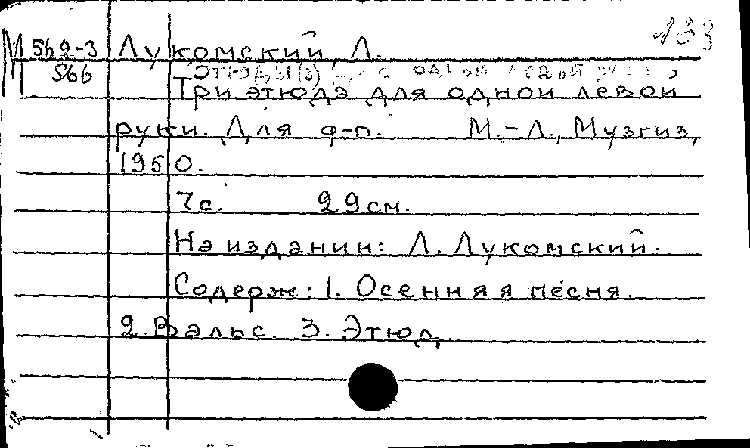 133
М 562-3 Лукомский, Л.
566 Этюды(3) для одной левой руки,
Три этюда для одной левой
руки. Для ф-п. М.-Л., Музгиз,
1950.
7с. 29см.
На издании: Л. Лукомский.
Содерж: 1. Осенняя песня.
2. Вальс. 3. Этюд.